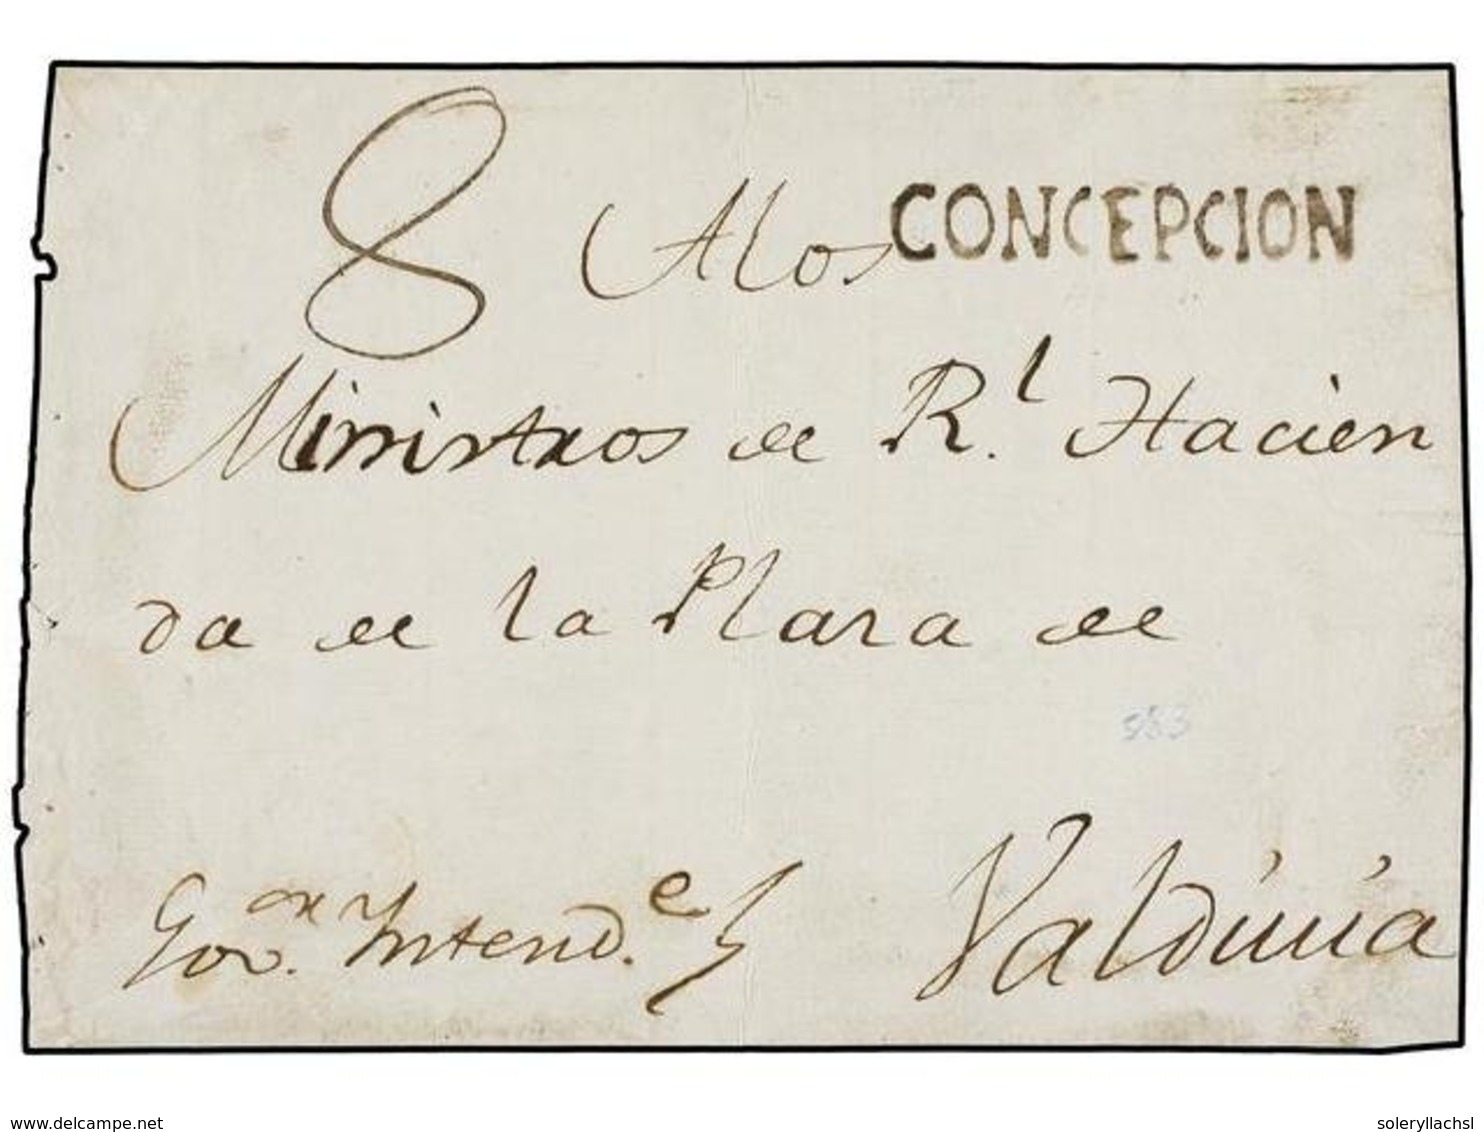 8 A los CONCEPCION
Ministros de R.l Hacien
da de la Plaza de
983
Gov.or Intend.e Valdivia
www.delcampe.net
soleryllachsl